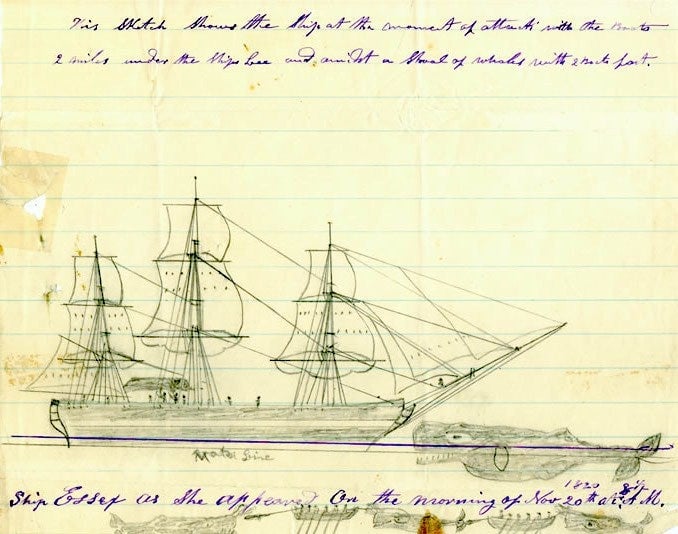 This Sketch Shows the Ship at the moment of attack with the Boats
2 miles under the Ships Lee and amidst a Shoal of whales with 2 Boats fast.
Water Line
1820
Ship Essex as She appeared On the morning of Nov 20th at A.M.